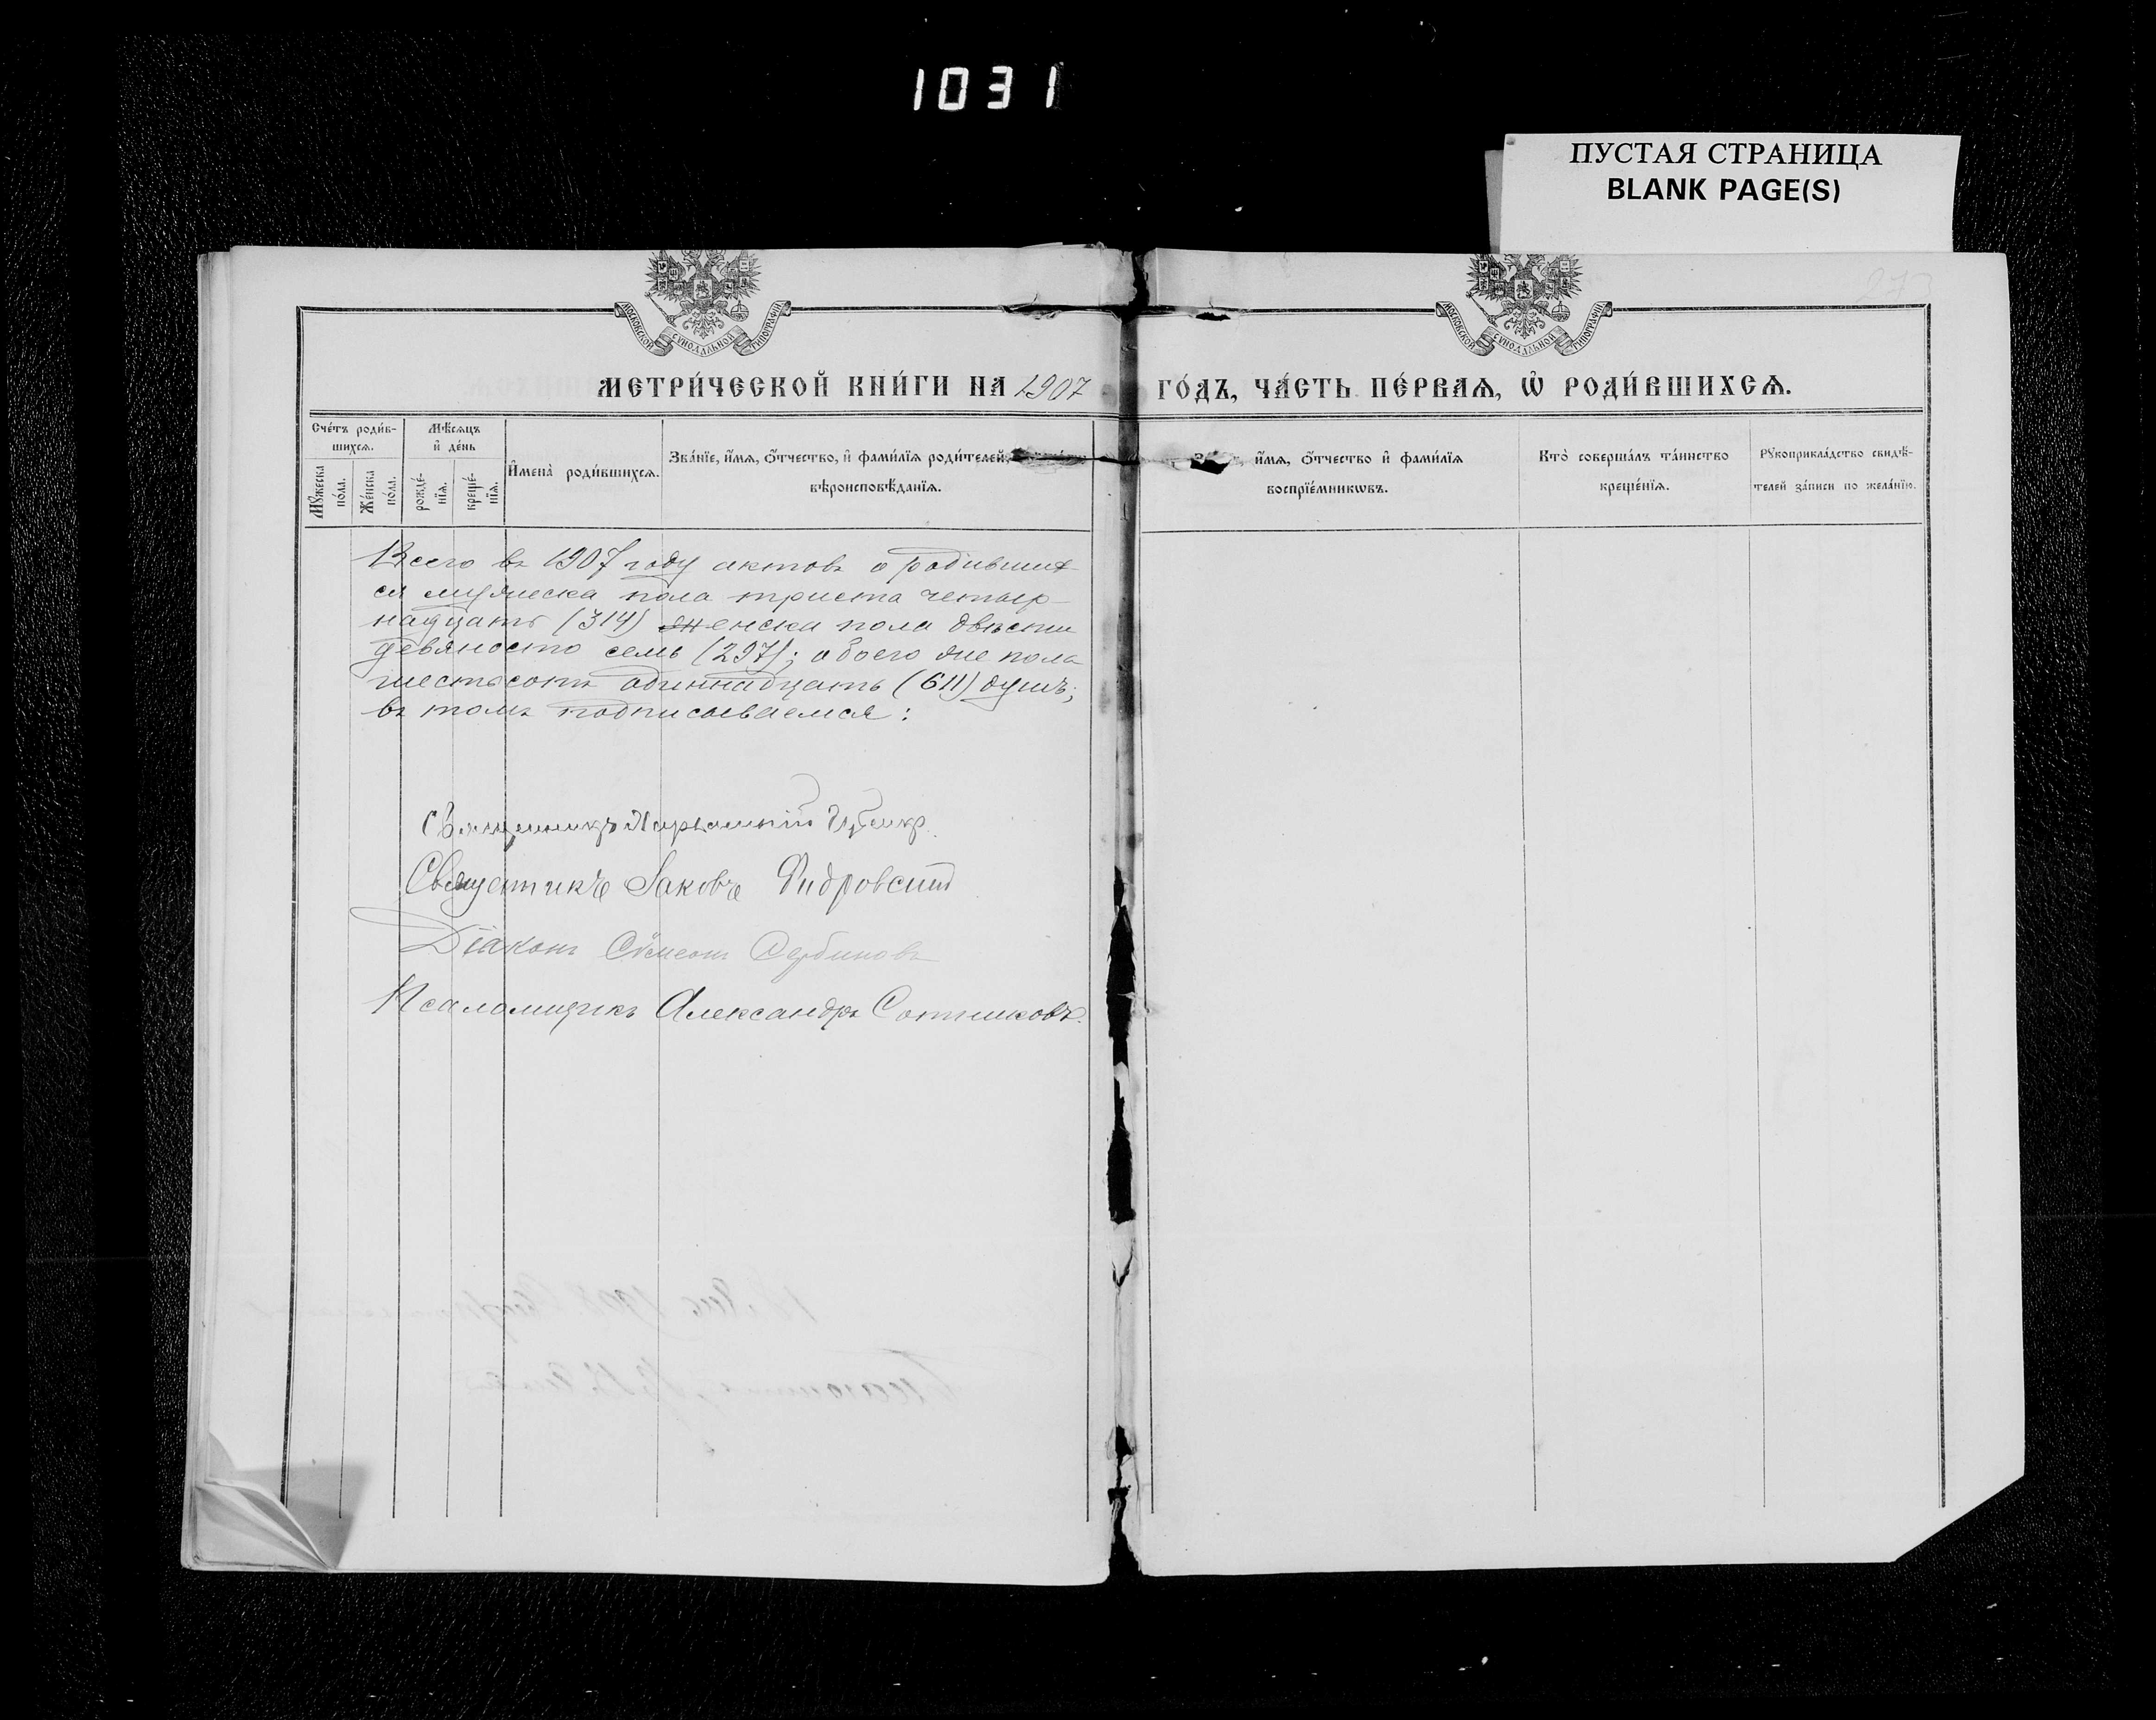 1031
ПУСТАЯ СТРАНИЦА
BLANK PAGE(S)
МОСКОВСКОЙ СѴНОДАЛЬНОЙ ТИПОГРАФІИ
МОСКОВСКОЙ СѴНОДАЛЬНОЙ ТИПОГРАФІИ
МЕТРИ́ЧЕСКОЙ КНИ́ГИ НА 1907 ГО́ДЪ, ЧА́СТЬ ПЕ́РВАѦ, Ѡ҆ РОДИ́ВШИХСѦ.
Сче́тъ роди́в-
шихсѧ.
Мꙋ́жеска
по́ла.
Же́нска
по́ла.
Мѣ́сѧцъ
и҆ де́нь
рожде́-
нїѧ.
креще́-
нїѧ.
И҆мена̀ роди́вшихсѧ.
Зва́нїе, и҆́мѧ, ѻ҆́тчество, и҆ фами́лїѧ роди́телей,
вѣроисповѣ́данїѧ.
и҆́мѧ, ѻ҆́тчество и҆ фами́лїѧ
воспрїе́мникѡвъ.
Кто̀ соверша́лъ та́инство
креще́нїѧ.
Рꙋкоприкла́дство свидѣ́-
телей за́писи по жела́нїю.
Всего въ 1907 году актовъ о родивших-
ся мужеска пола триста четыр-
надцать (314) женска пола двѣсти
девяносто семь (297); обоего же пола
шестьсотъ одиннадцать (611) душъ;
въ томъ подписываемся:
Священникъ
Священникъ Іаковъ
Діаконъ Сѵмеонъ Сербиновъ
Псаломщикъ Александръ Сотниковъ.